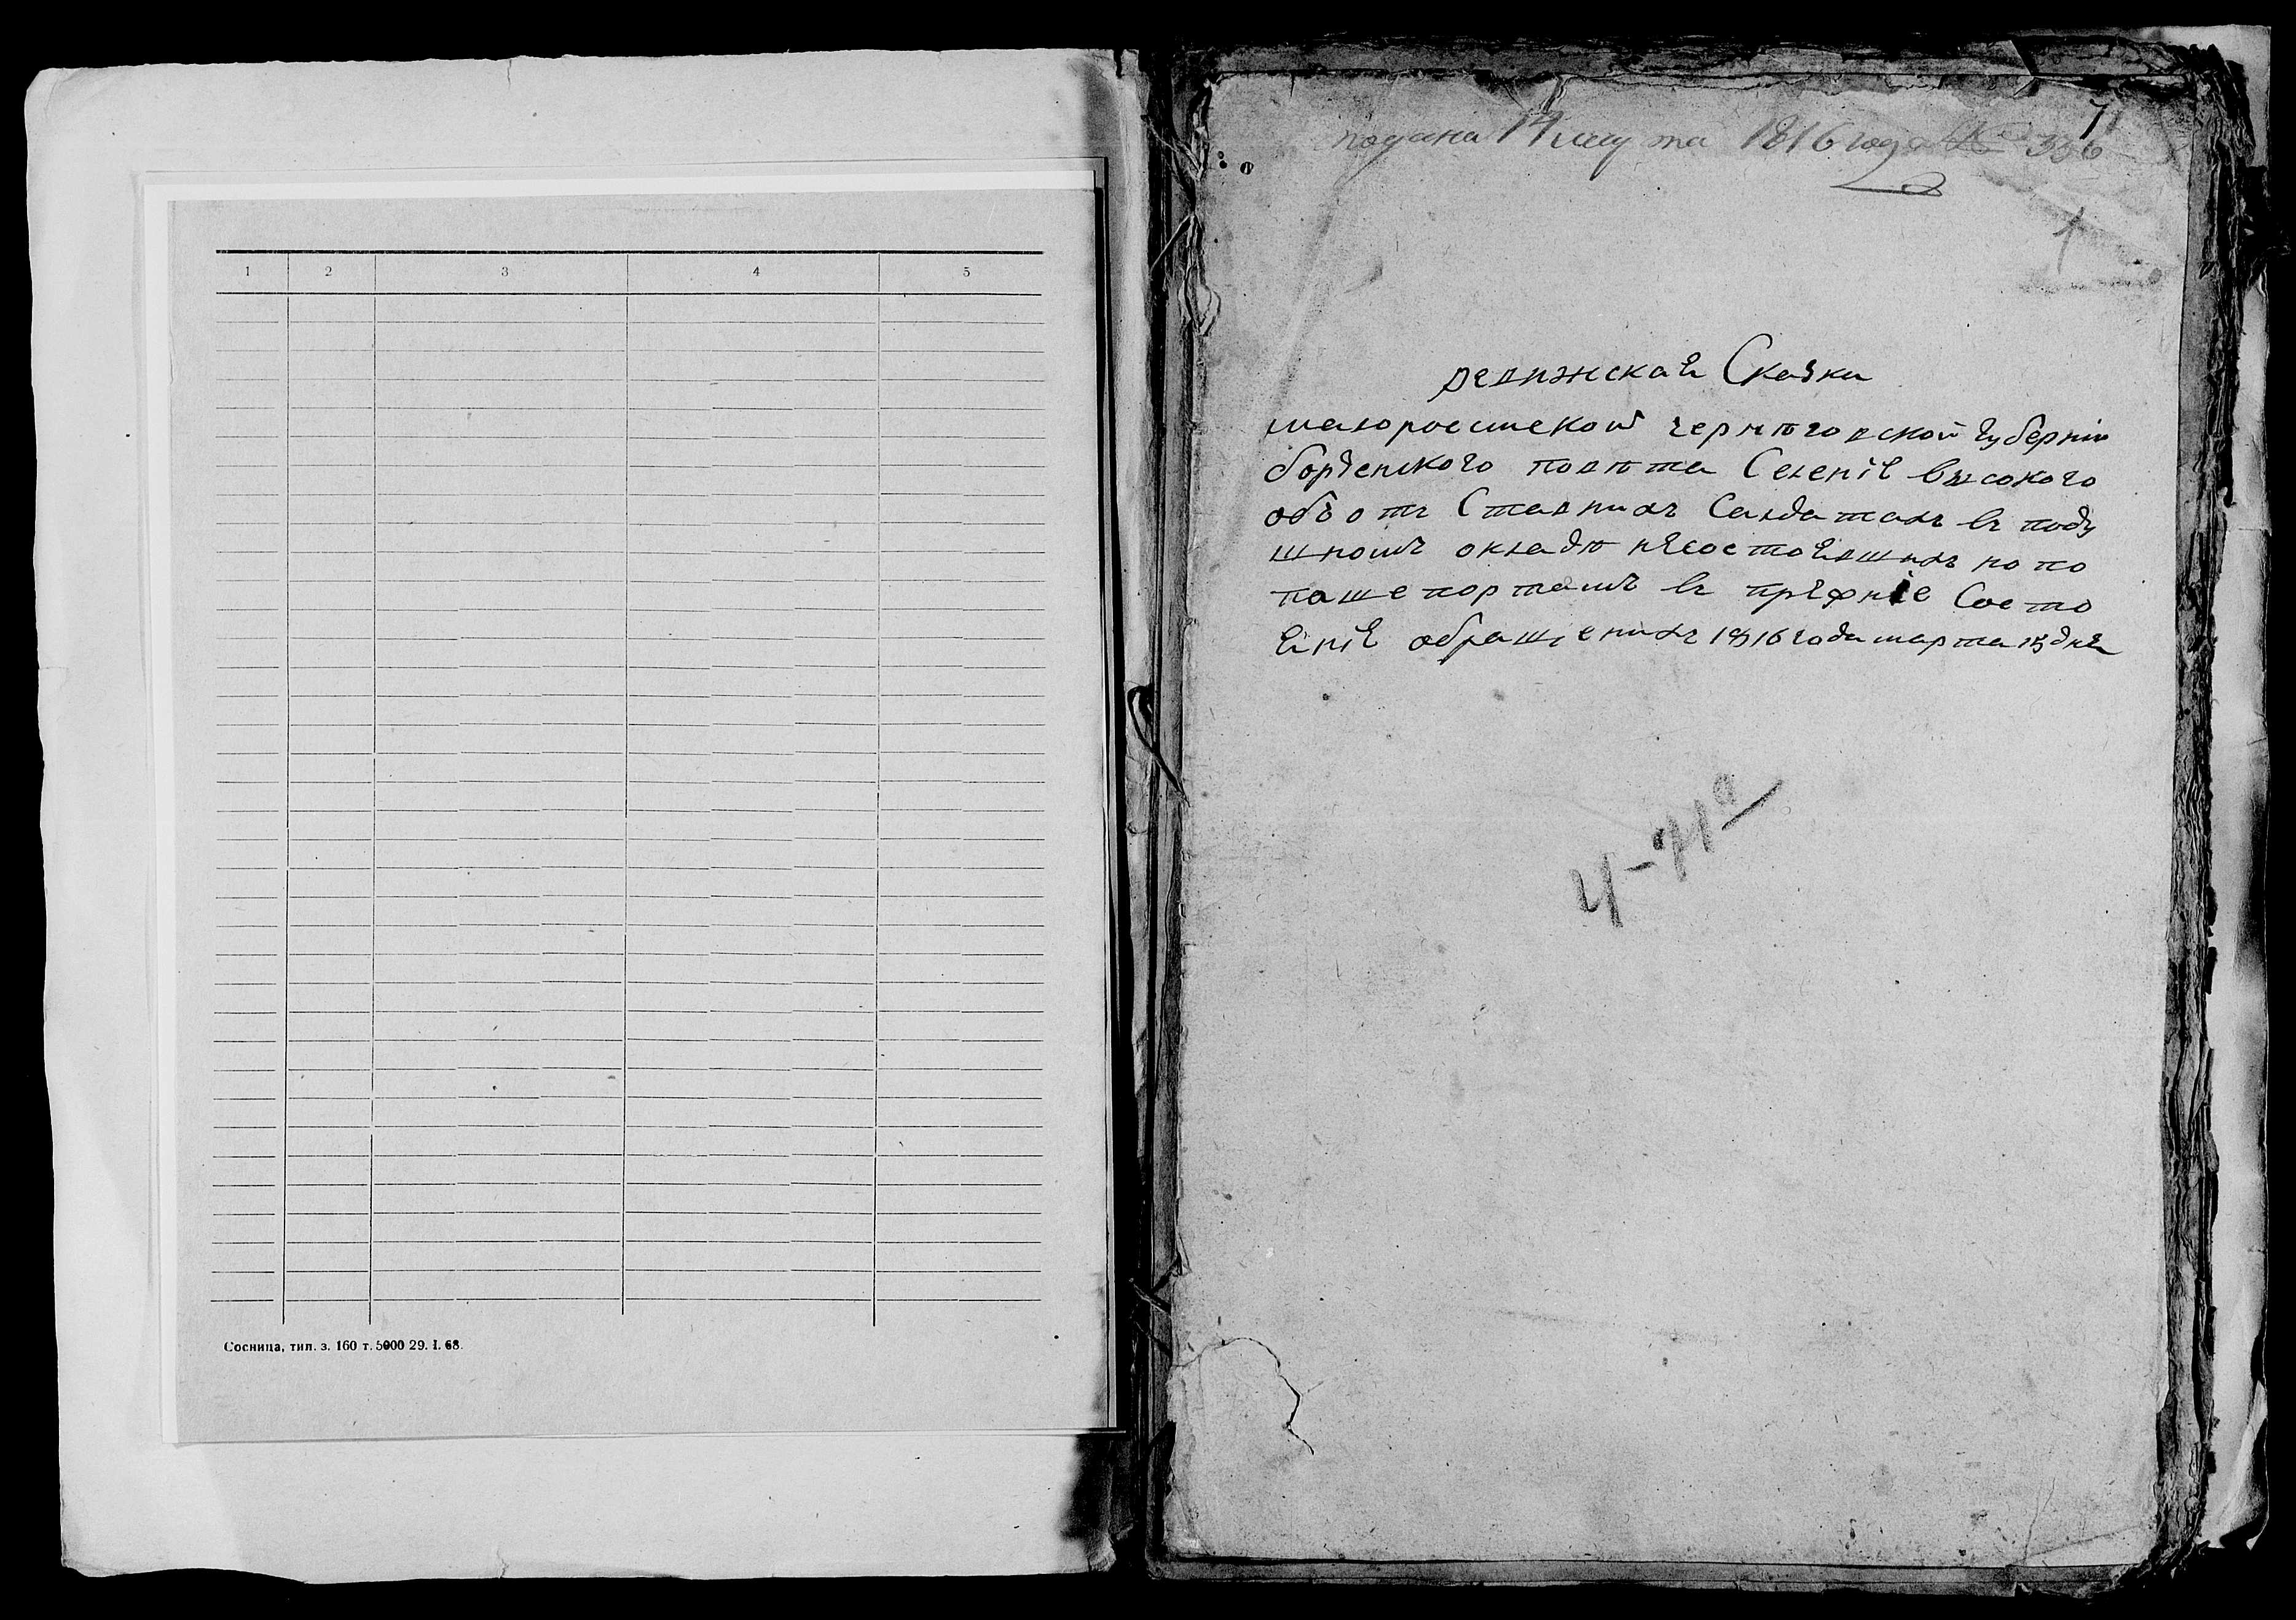 1 2 3 4 5
Сосница, тип. з. 160 т. 5000 29. I. 68.
подана 1816 года № 336
1
ревижская Сказка
малоросииской чернѣговской губерніи
борзенского повѣта Селеніе высокого
об от ставних Салдатах в поду
шном окладѣ несостоявших но по
пашепортам в прежніе Состо
яніе обращених 1816 года марта 15 дня